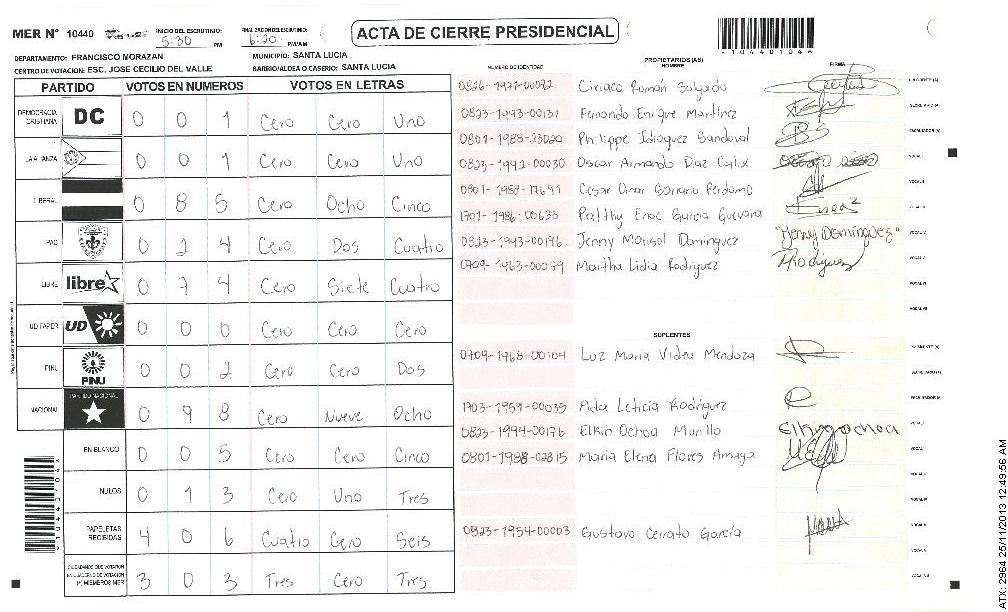 MER N° 10440 INICIO DEL ESCRUTINIO: 5:30 PM FINALIZACION DEL ESCRUTINIO: 6:20 PM/AM
ACTA DE CIERRE PRESIDENCIAL
*10440104*
DEPARTAMENTO: FRANCISCO MORAZAN MUNICIPIO: SANTA LUCIA
CENTRO DE VOTACION: ESC. JOSE CECILIO DEL VALLE BARRIO/ALDEA O CASERIO: SANTA LUCIA
PARTIDO VOTOS EN NUMEROS VOTOS EN LETRAS
DEMOCRACIA CRISTIANA DC 0 0 1 Cero Cero Uno
LA ALIANZA 0 0 1 Cero Cero Uno
LIBERAL 0 8 5 Cero Ocho Cinco
PAC 0 2 4 Cero Dos Cuatro
LIBRE libre 0 7 4 Cero Siete Cuatro
UD FAPER UD 0 0 0 Cero Cero Cero
PINU PINU 0 0 2 Cero Cero Dos
NACIONAL PARTIDO NACIONAL 0 9 8 Cero Nueve Ocho
EN BLANCO 0 0 5 Cero Cero Cinco
NULOS 0 1 3 Cero Uno Tres
PAPELETAS RECIBIDAS 4 0 6 Cuatro Cero Seis
CIUDADANOS QUE VOTARON EN CUADERNO DE VOTACION (+) MIEMBROS MER 3 0 3 Tres Cero Tres
NUMERO DE IDENTIDAD PROPIETARIOS (AS) NOMBRE FIRMA
0826-1977-00092 Ciriaco Román Salgado
0823-1993-00137 Fernando Enrique Martínez
0801-1988-23020 Philippe Idiaquez Sandoval
0823-1992-00030 Oscar Armando Diaz Calix
0801-1988-17691 Cesar Omar Soriano Perdomo
1701-1986-00633 Palthy Enoc Garcia Guevara
0823-1993-00196 Jenny Marisol Dominguez "Jenny Dominguez"
0709-1963-00079 Martha Lidia Rodriguez MRodriguez
SUPLENTES
0709-1968-00104 Luz Maria Videa Mendoza
1703-1959-00035 Aida Leticia Rodríguez
0823-1994-00176 Elkin Ochoa Murillo Elkin ochoa
0801-1988-02815 Maria Elena Flores Amaya
0823-1954-00003 Gustavo Cerrato García
ATX: 2964 25/11/2013 12:49:56 AM